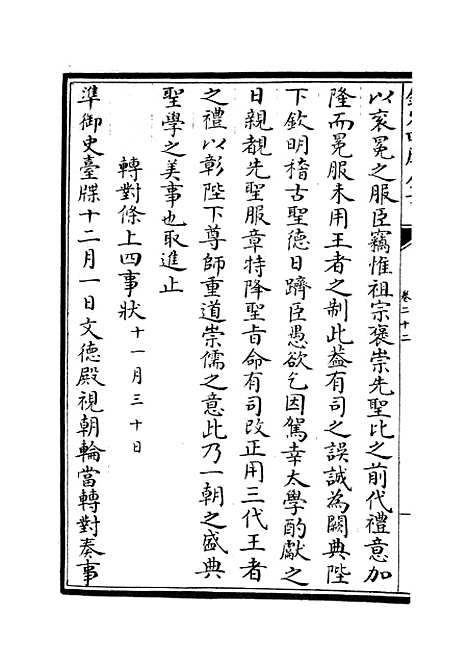 以衮冕之服臣竊惟祖宗褒崇先聖比之前代禮意加
隆而冕服未用王者之制此葢有司之誤誠為闕典陛
下欽明稽古聖德日躋臣愚欲乞因駕幸太學酌獻之
日親覩先聖服章特降聖㫖命有司改正用三代王者
之禮以彰陛下尊師重道崇儒之意此乃一朝之盛典
聖學之美事也取進止
轉對條上四事狀 十一月三十日
準御史臺牒十二月一日文德殿視朝輪當轉對奏事
卷二十二